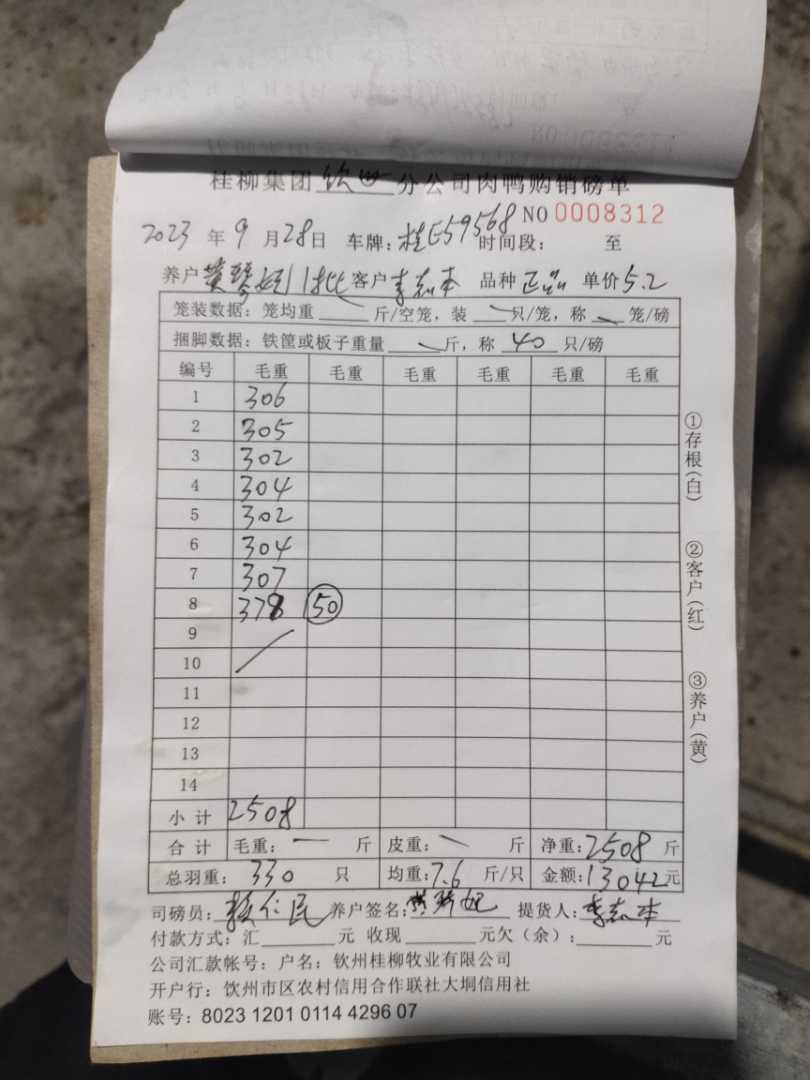 桂柳集团 钦州 分公司肉鸭购销磅单
NO 0008312
2023 年 9 月 28 日 车牌: 桂E59568 时间段: 至
养户 黄琴妃 1批 客户 李志本 品种 正品 单价 5.2
笼装数据: 笼均重 斤/空笼, 装 只/笼, 称 笼/磅
捆脚数据: 铁筐或板子重量 斤, 称 40 只/磅
编号 毛重 毛重 毛重 毛重 毛重 毛重
1 306
2 305
3 302
4 304
5 302
6 304
7 307
8 378 50
9
10
11
12
13
14
小计 2508
合计 毛重: 一 斤 皮重: 斤 净重: 2508 斤
总羽重: 330 只 均重: 7.6 斤/只 金额: 13042 元
司磅员: 仁民 养户签名: 黄琴妃 提货人: 李志本
付款方式: 汇 元 收现 元欠(余): 元
公司汇款帐号: 户名: 钦州桂柳牧业有限公司
开户行: 钦州市区农村信用合作联社大垌信用社
账号: 8023 1201 0114 4296 07
①存根(白)
②客户(红)
③养户(黄)